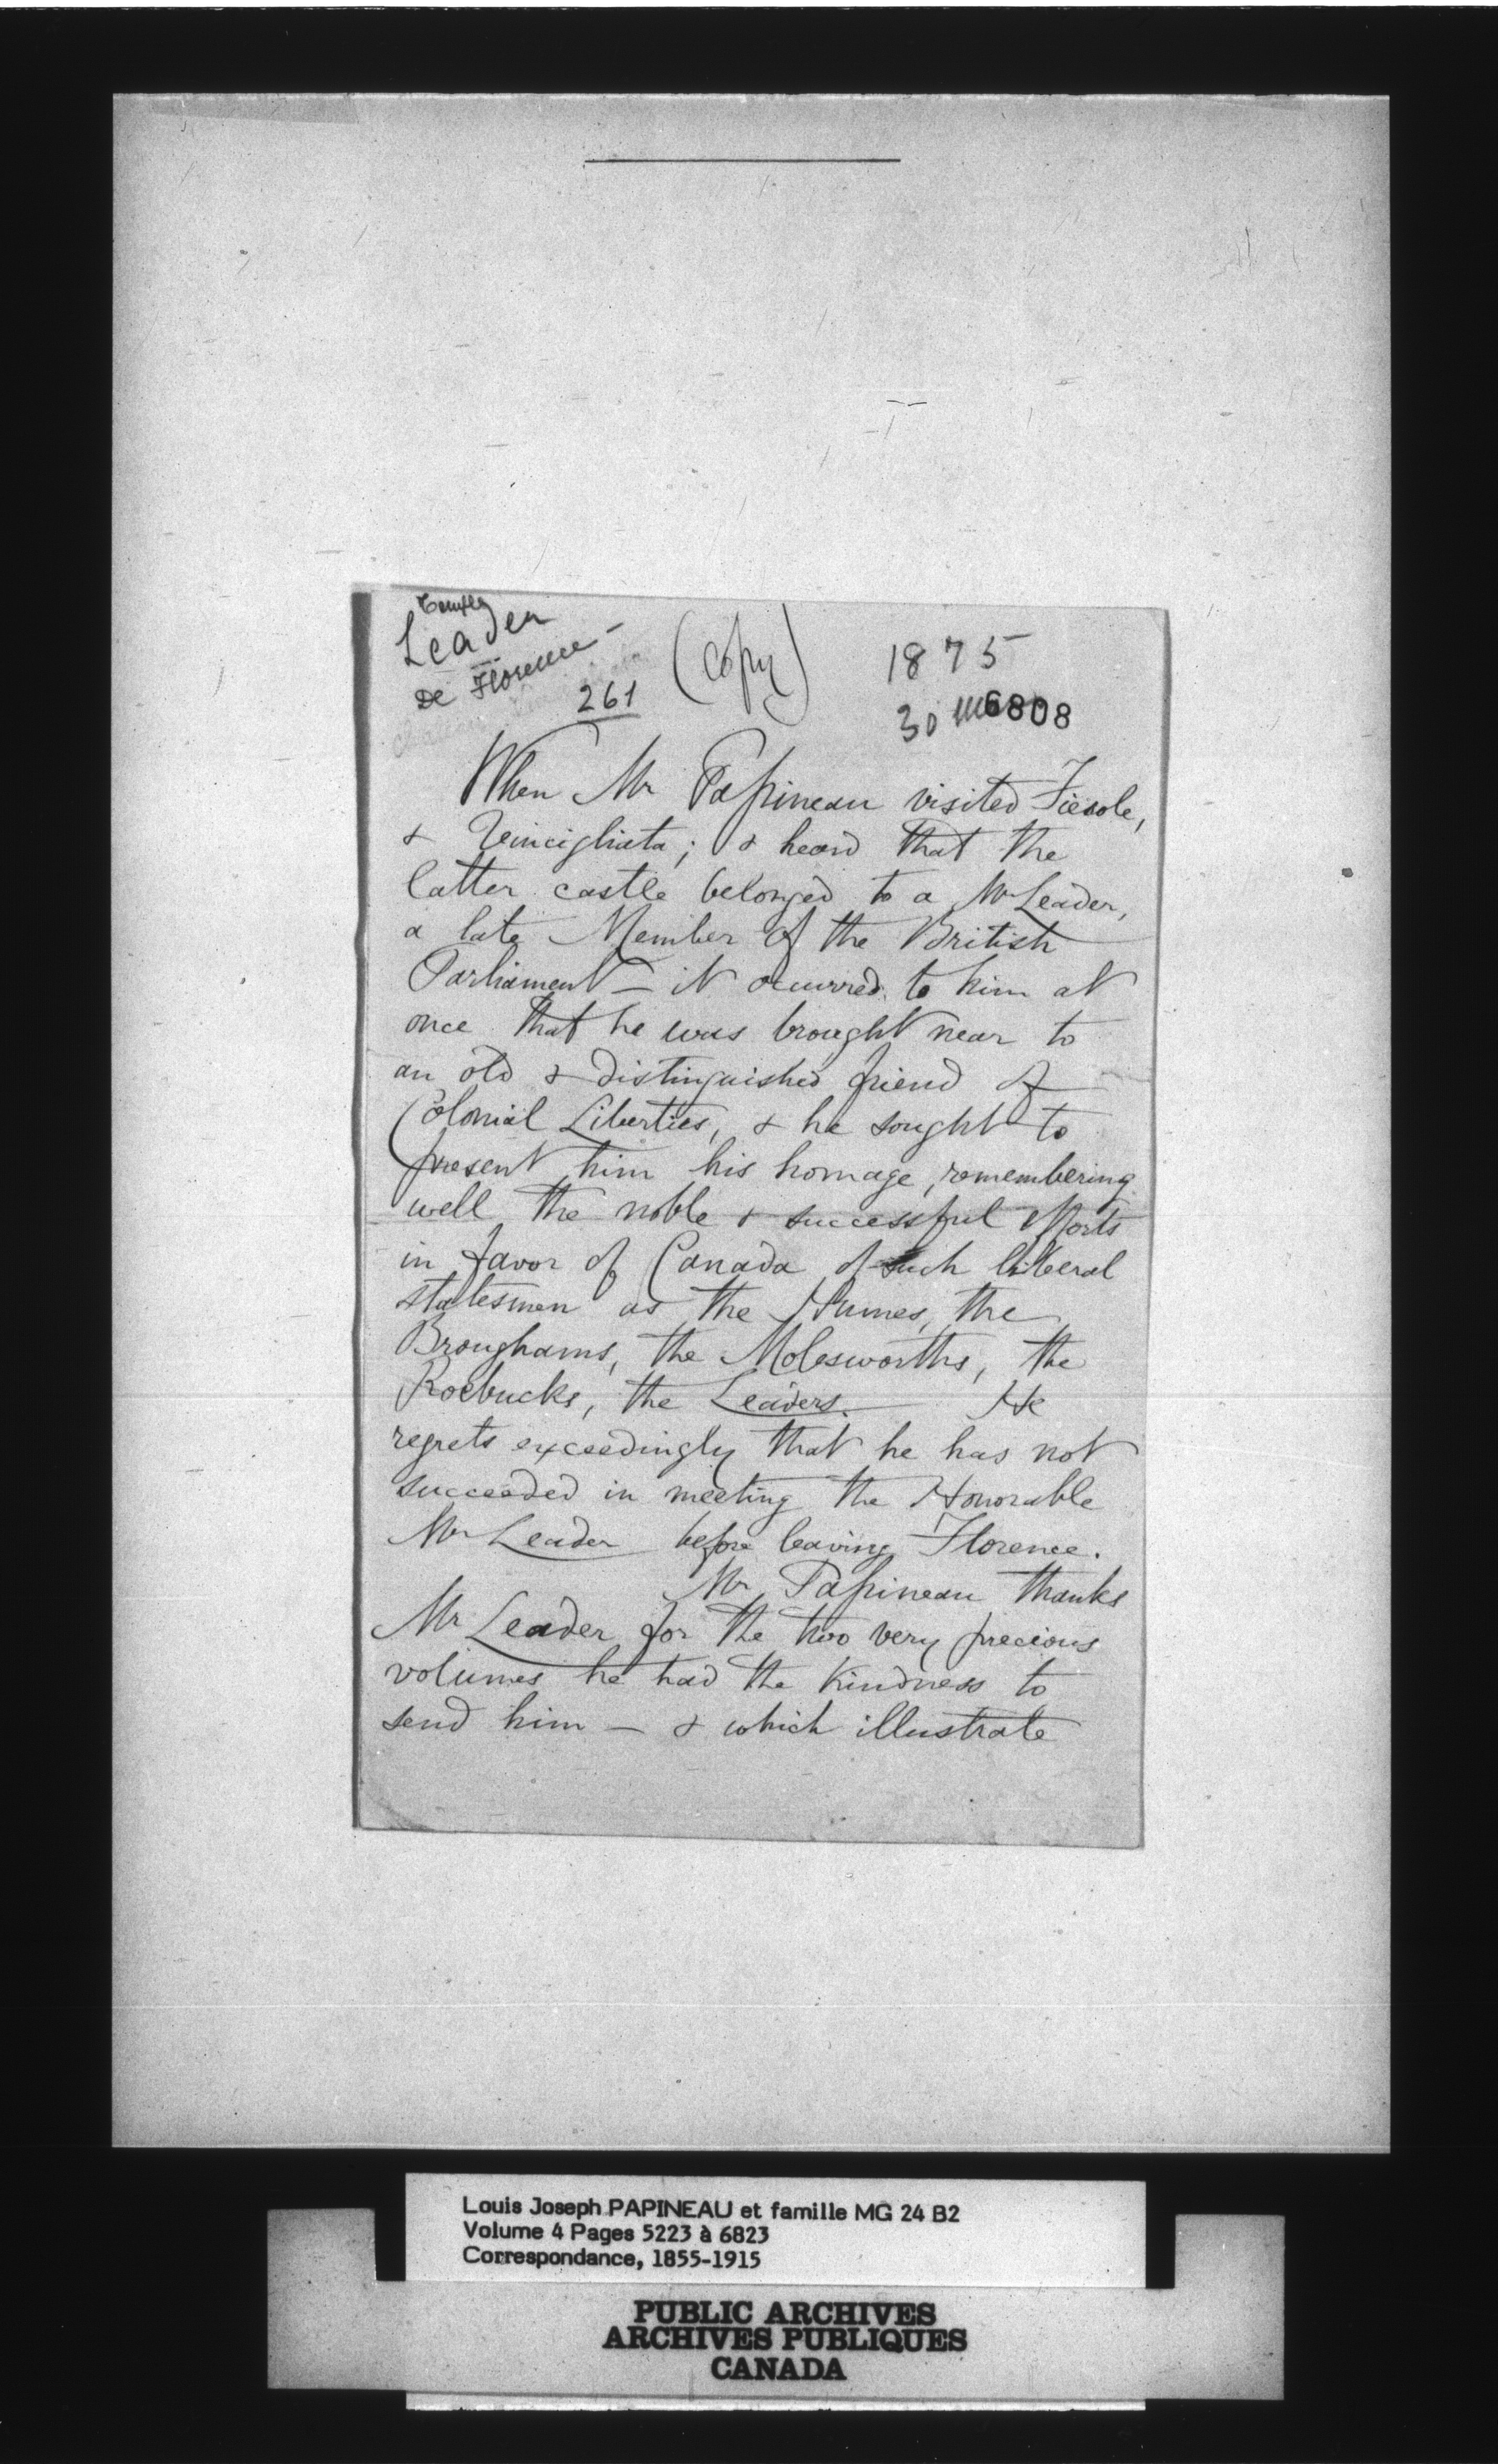 Temple
Leader
De Florence -
261
(Copy)
1875
30 6808
When Mr Papineau visited Fiesole,
& Vincigliata; & heard that the
latter castle belonged to a Mr Leader,
a late Member of the British
Parliament - it occurred to him at
once that he was brought near to
an old & distinguished friend of
Colonial Liberties, & he sought to
present him his homage, remembering
well the noble & successful efforts
in favor of Canada of such liberal
statesmen as the Humes, the
Broughams, the Molesworths, the
Roebucks, the Leaders. He
regrets exceedingly that he has not
succeeded in meeting the Honorable
Mr Leader before leaving Florence.
Mr Papineau thanks
Mr Leader for the two very precious
volumes he had the kindness to
send him - & which illustrate
Louis Joseph PAPINEAU et famille MG 24 B2
Volume 4 Pages 5223 à 6823
Correspondance, 1855-1915
PUBLIC ARCHIVES
ARCHIVES PUBLIQUES
CANADA